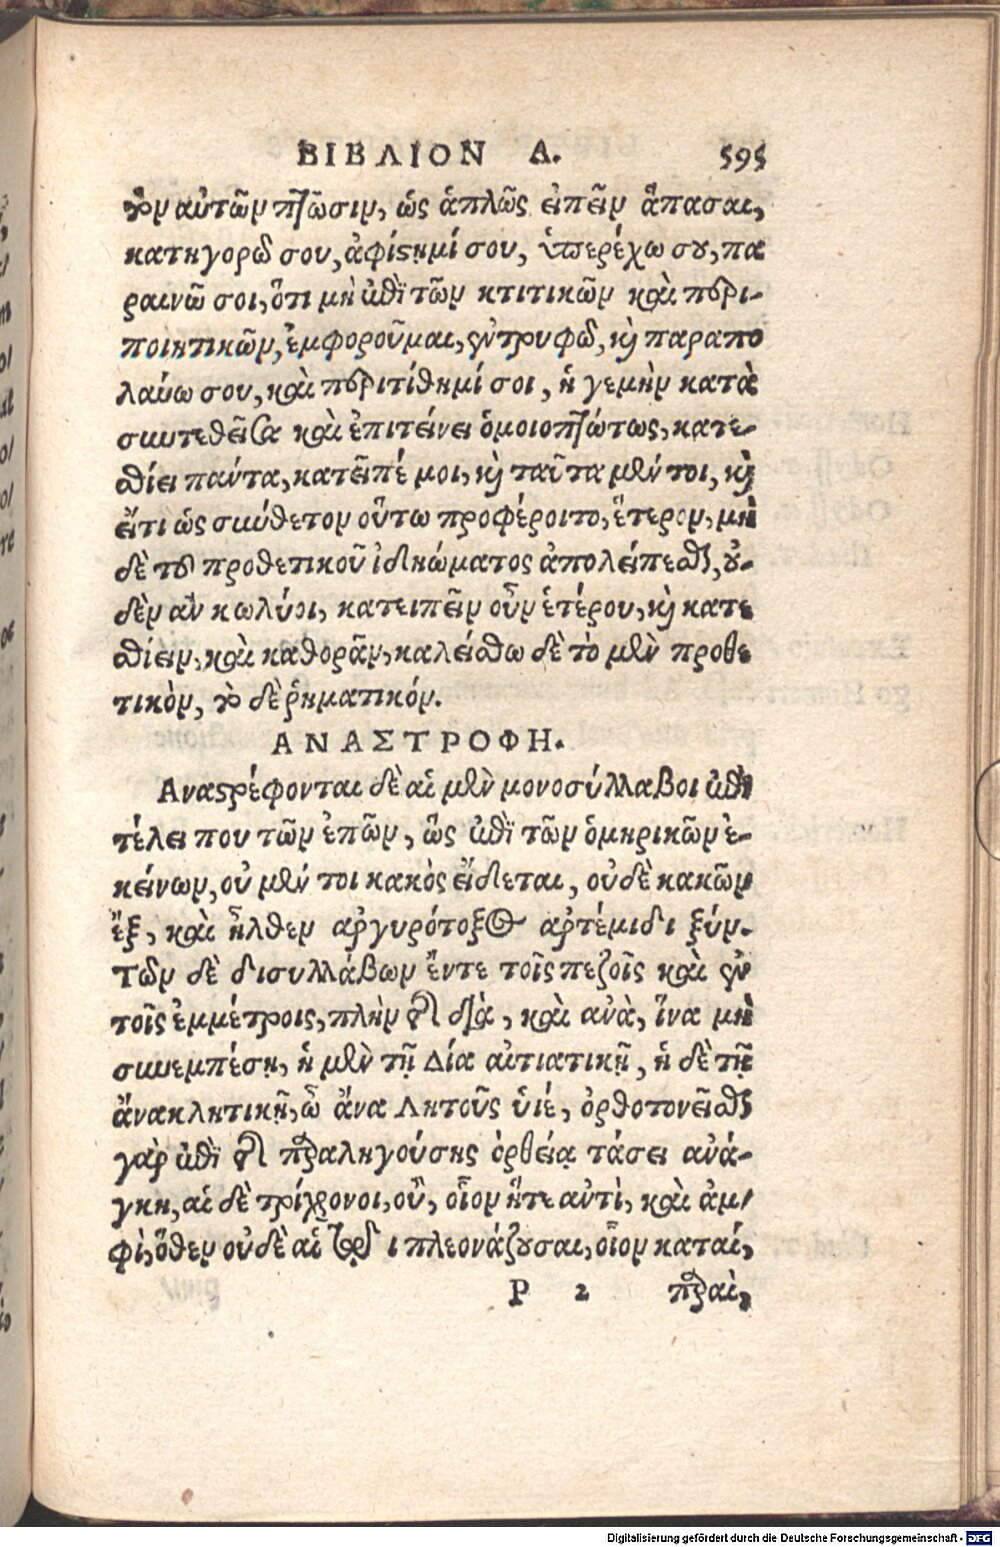 ΒΙΒΛΙΟΝ Δ. 595
τὴν αὐτῶν πτῶσιν, ὡς ἁπλῶς εἰπεῖν ἅπασαι,
κατηγορῶ σου, ἀφίστημί σου, ὑπερέχω σου, πα
ραινῶ σοι, ὅτι μὴ ἐπὶ τῶν κτιτικῶν καὶ περι-
ποιητικῶν, ἐμφοροῦμαι, ἐντρυφῶ, καὶ παραπο
λαύω σου, καὶ περιτίθημί σοι, ἡ γεμὴν κατὰ
συντεθεῖσα καὶ ἐπιτείνει ὁμοιοπτώτως, κατε-
σθίει πάντα, κατεῖπέ μοι, καὶ ταῦτα μέν τοι, καὶ
εἴτι ὡς σύνθετον οὕτω προφέροιτο, ἕτερον, μη
δὲ τοῦ προθετικοῦ ἰδιώματος ἀπολείπεσθαι, οὐ-
δὲν ἂν κωλύοι, κατειπεῖν οὖν ἑτέρου, καὶ κατε
σθίειν, καὶ καθορᾶν, καλείσθω δὲ τὸ μὲν προθε
τικὸν, τὸ δὲ ῥηματικόν.
ΑΝΑΣΤΡΟΦΗ.
Αναστρέφονται δὲ αἱ μὲν μονοσύλλαβοι ἐπὶ
τέλει που τῶν ἐπῶν, ὡς ἐπὶ τῶν ὁμηρικῶν ἐ-
κείνων, οὐ μέν τοι κακὸς εἴδεται, οὐδὲ κακῶν
ἔξ, καὶ ἦλθεν ἀργυρότοξος ἀρτέμιδι ξύν.
τῶν δὲ δισυλλάβων ἔντε τοῖς πεζοῖς καὶ ἐν
τοῖς ἐμμέτροις, πλὴν τῆς διὰ, καὶ ἀνὰ, ἵνα μὴ
συνεμπέσῃ, ἡ μὲν τῇ Δία αἰτιατικῇ, ἡ δὲ τῇ
ἄνακλητικῇ, ὦ ἄνα Λητοῦς ὑιέ, ὀρθοτονεῖσθαι
γὰρ ἐπὶ τῆς παραληγούσης ὀρθείᾳ τάσει ἀνά-
γκη, αἱ δὲ τρίχρονοι, οὒ, οἷον ἥτε ἀντὶ, καὶ ἀμ-
φὶ, ὅθεν οὐδὲ αἱ τῷ ι πλεονάζουσαι, οἷον καταί,
P 2 παραὶ,